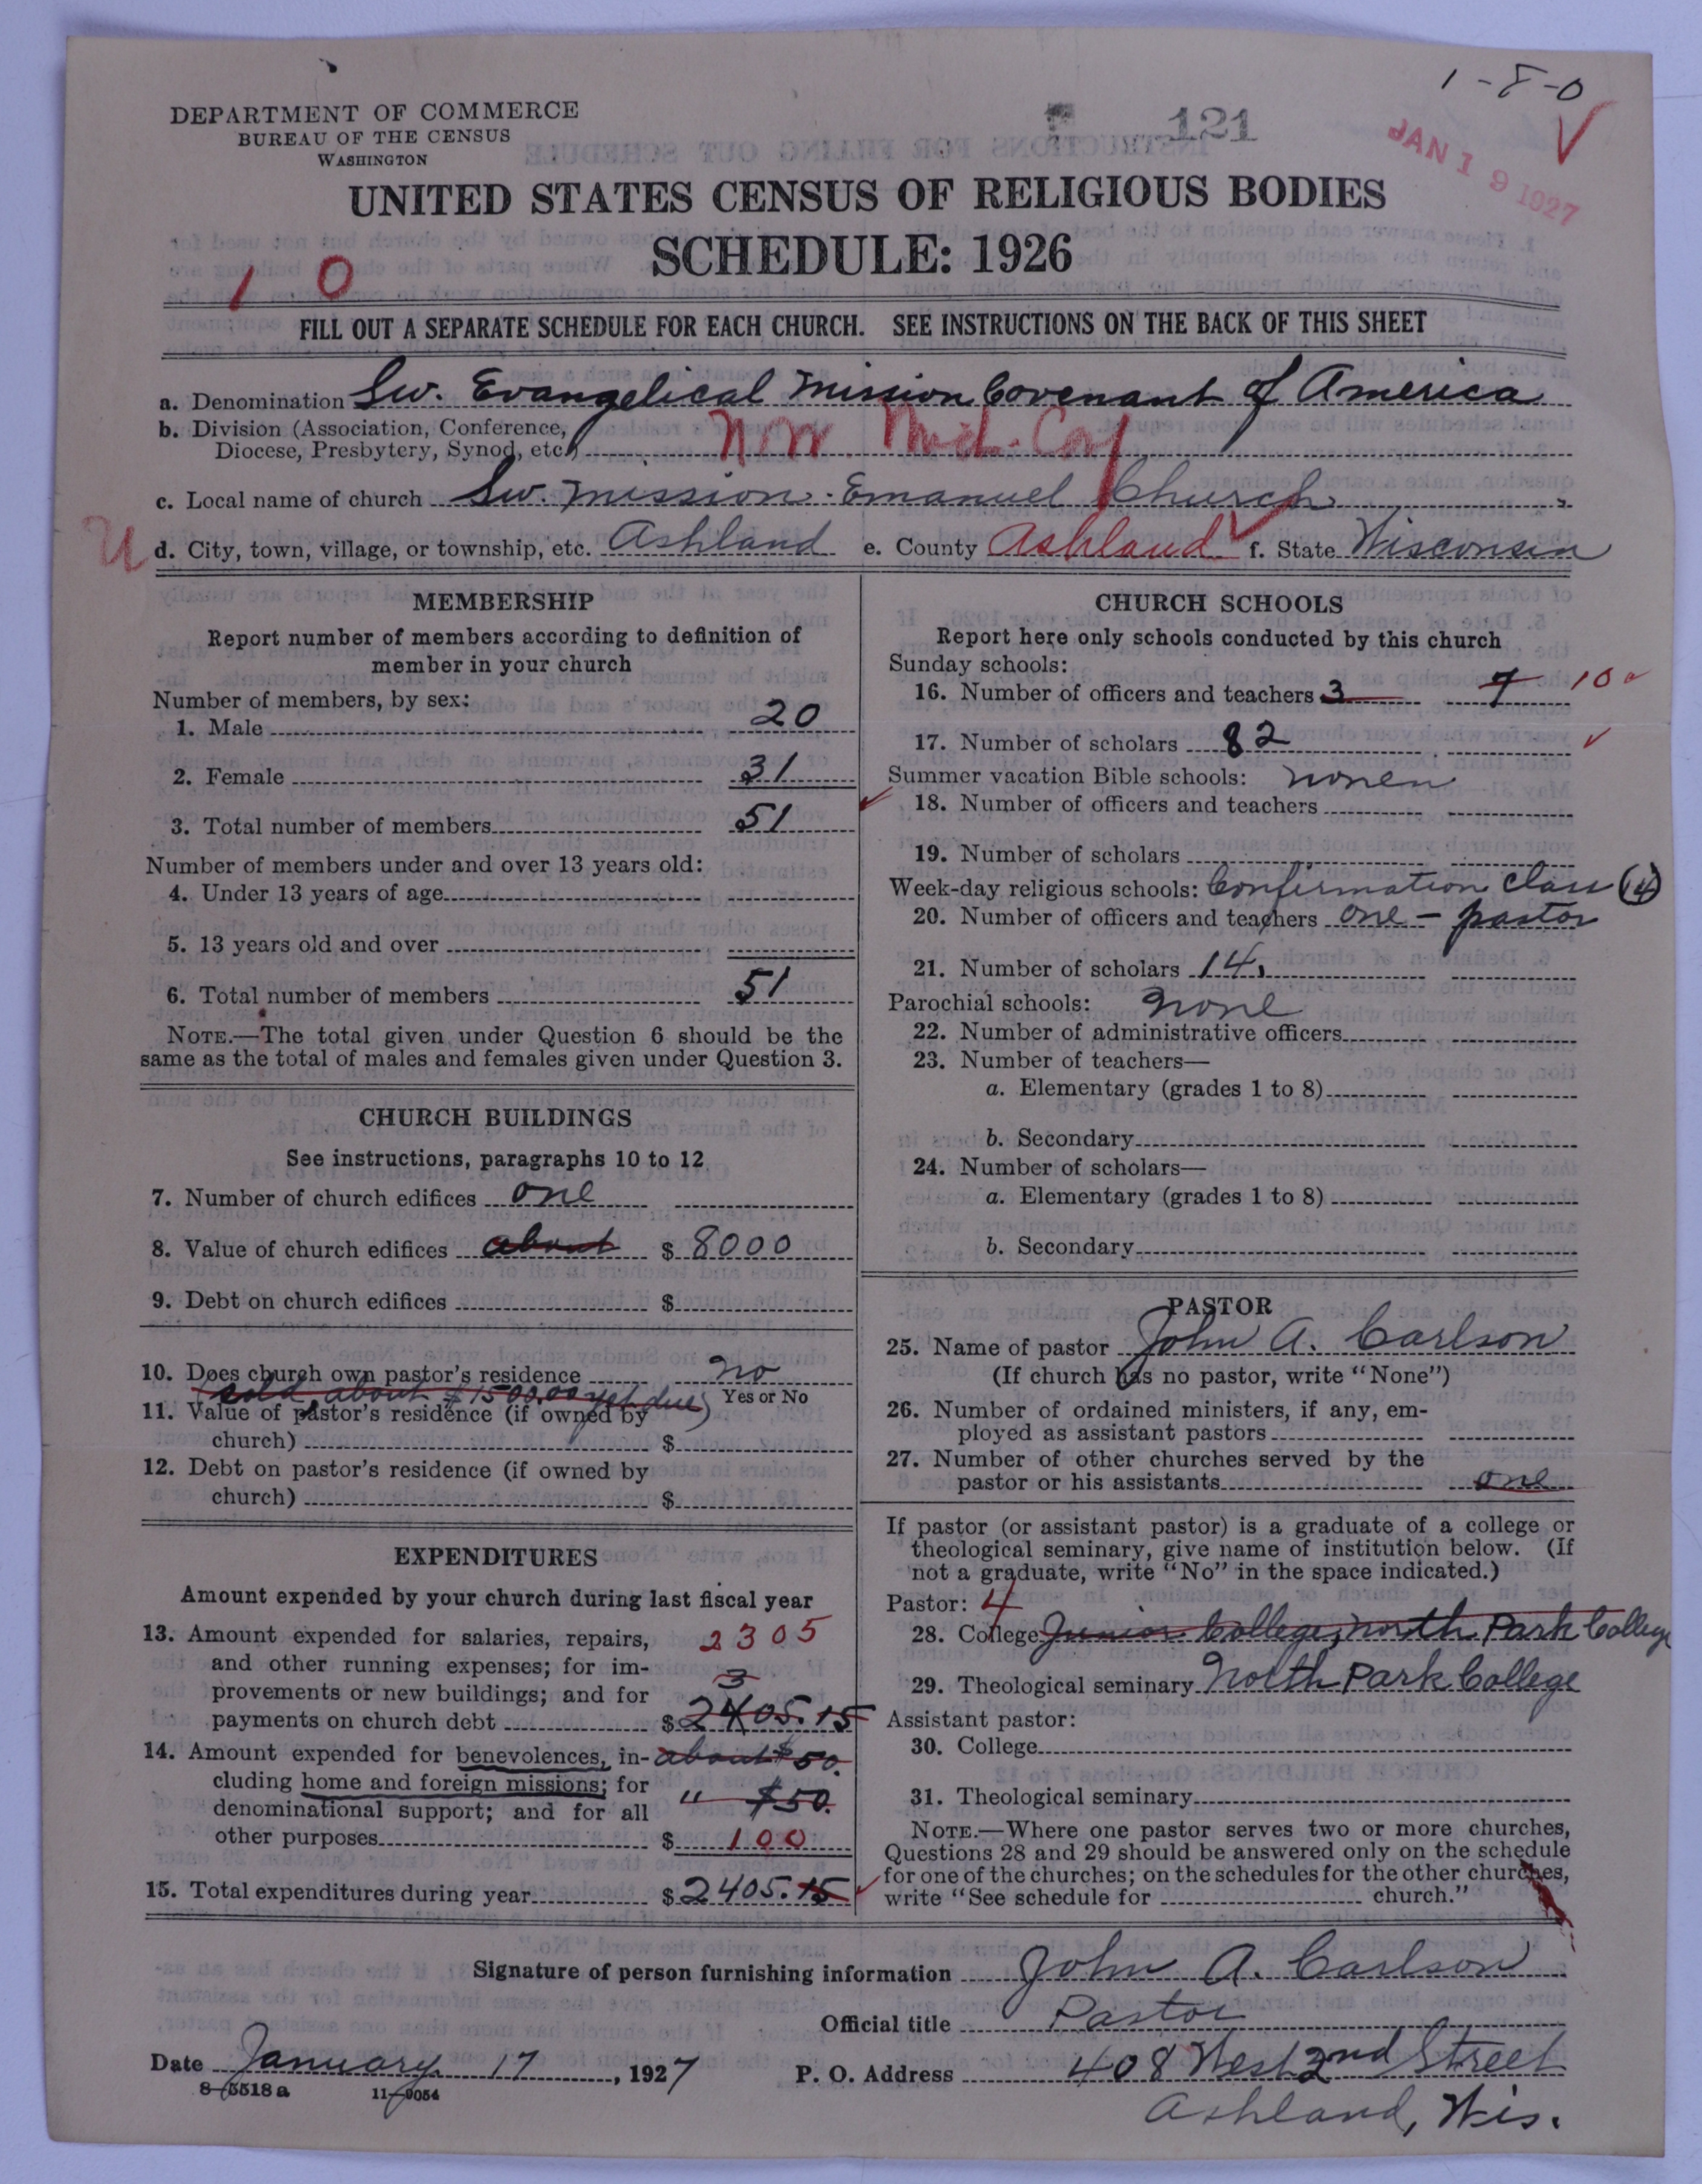 1-8-0
DEPARTMENT OF COMMERCE
BUREAU OF THE CENSUS
WASHINGTON
121
JAN 19 1927
UNITED STATES CENSUS OF RELIGIOUS BODIES
SCHEDULE: 1926
1 0
FILL OUT A SEPARATE SCHEDULE FOR EACH CHURCH. SEE INSTRUCTIONS ON THE BACK OF THIS SHEET
a. Denomination Sw. Evangelical Mission Covenant of America
b. Division (Association, Conference,
Diocese, Presbytery, Synod, etc.)
c. Local name of church Sw. Mission Emanuel Church
U d. City, town, village, or township, etc. Ashland e. County Ashland f. State Wisconsin
MEMBERSHIP
Report number of members according to definition of
member in your church
Number of members, by sex:
1. Male 20
2. Female 31
3. Total number of members 51
Number of members under and over 13 years old:
4. Under 13 years of age
5. 13 years old and over
6. Total number of members 51
NOTE.—The total given under Question 6 should be the
same as the total of males and females given under Question 3.
CHURCH BUILDINGS
See instructions, paragraphs 10 to 12
7. Number of church edifices one
8. Value of church edifices about $ 8000
9. Debt on church edifices $
10. Does church own pastor's residence no
Yes or No
(sold, about $1500.00 yet due)
11. Value of pastor's residence (if owned by
church) $
12. Debt on pastor's residence (if owned by
church) $
EXPENDITURES
Amount expended by your church during last fiscal year
13. Amount expended for salaries, repairs, 2305
and other running expenses; for im-
provements or new buildings; and for 3
payments on church debt $ 2405.15
14. Amount expended for benevolences, in- about $50.
cluding home and foreign missions; for
denominational support; and for all " $50.
other purposes $ 100
15. Total expenditures during year $ 2405.15
CHURCH SCHOOLS
Report here only schools conducted by this church
Sunday schools:
16. Number of officers and teachers 3 7 10
17. Number of scholars 82
Summer vacation Bible schools: nonen
18. Number of officers and teachers
19. Number of scholars
Week-day religious schools: Confirmation Class (14)
20. Number of officers and teachers one - pastor
21. Number of scholars 14,
Parochial schools: none
22. Number of administrative officers
23. Number of teachers—
a. Elementary (grades 1 to 8)
b. Secondary
24. Number of scholars—
a. Elementary (grades 1 to 8)
b. Secondary
PASTOR
25. Name of pastor John A. Carlson
(If church has no pastor, write "None")
26. Number of ordained ministers, if any, em-
ployed as assistant pastors
27. Number of other churches served by the
pastor or his assistants one
If pastor (or assistant pastor) is a graduate of a college or
theological seminary, give name of institution below. (If
not a graduate, write "No" in the space indicated.)
Pastor: 4
28. College Junior College, North Park College
29. Theological seminary North Park College
Assistant pastor:
30. College
31. Theological seminary
NOTE.—Where one pastor serves two or more churches,
Questions 28 and 29 should be answered only on the schedule
for one of the churches; on the schedules for the other churches,
write "See schedule for church."
Signature of person furnishing information John A. Carlson
Official title Pastor
Date January 17, 1927 P. O. Address 408 West 2nd Street
8-5518a 11-9054
Ashland, Wis.